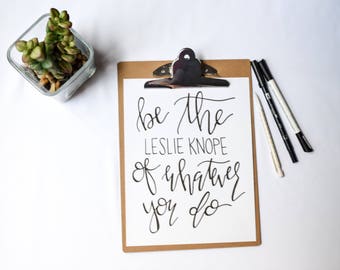 be the
LESLIE KNOPE
of whatever
you do